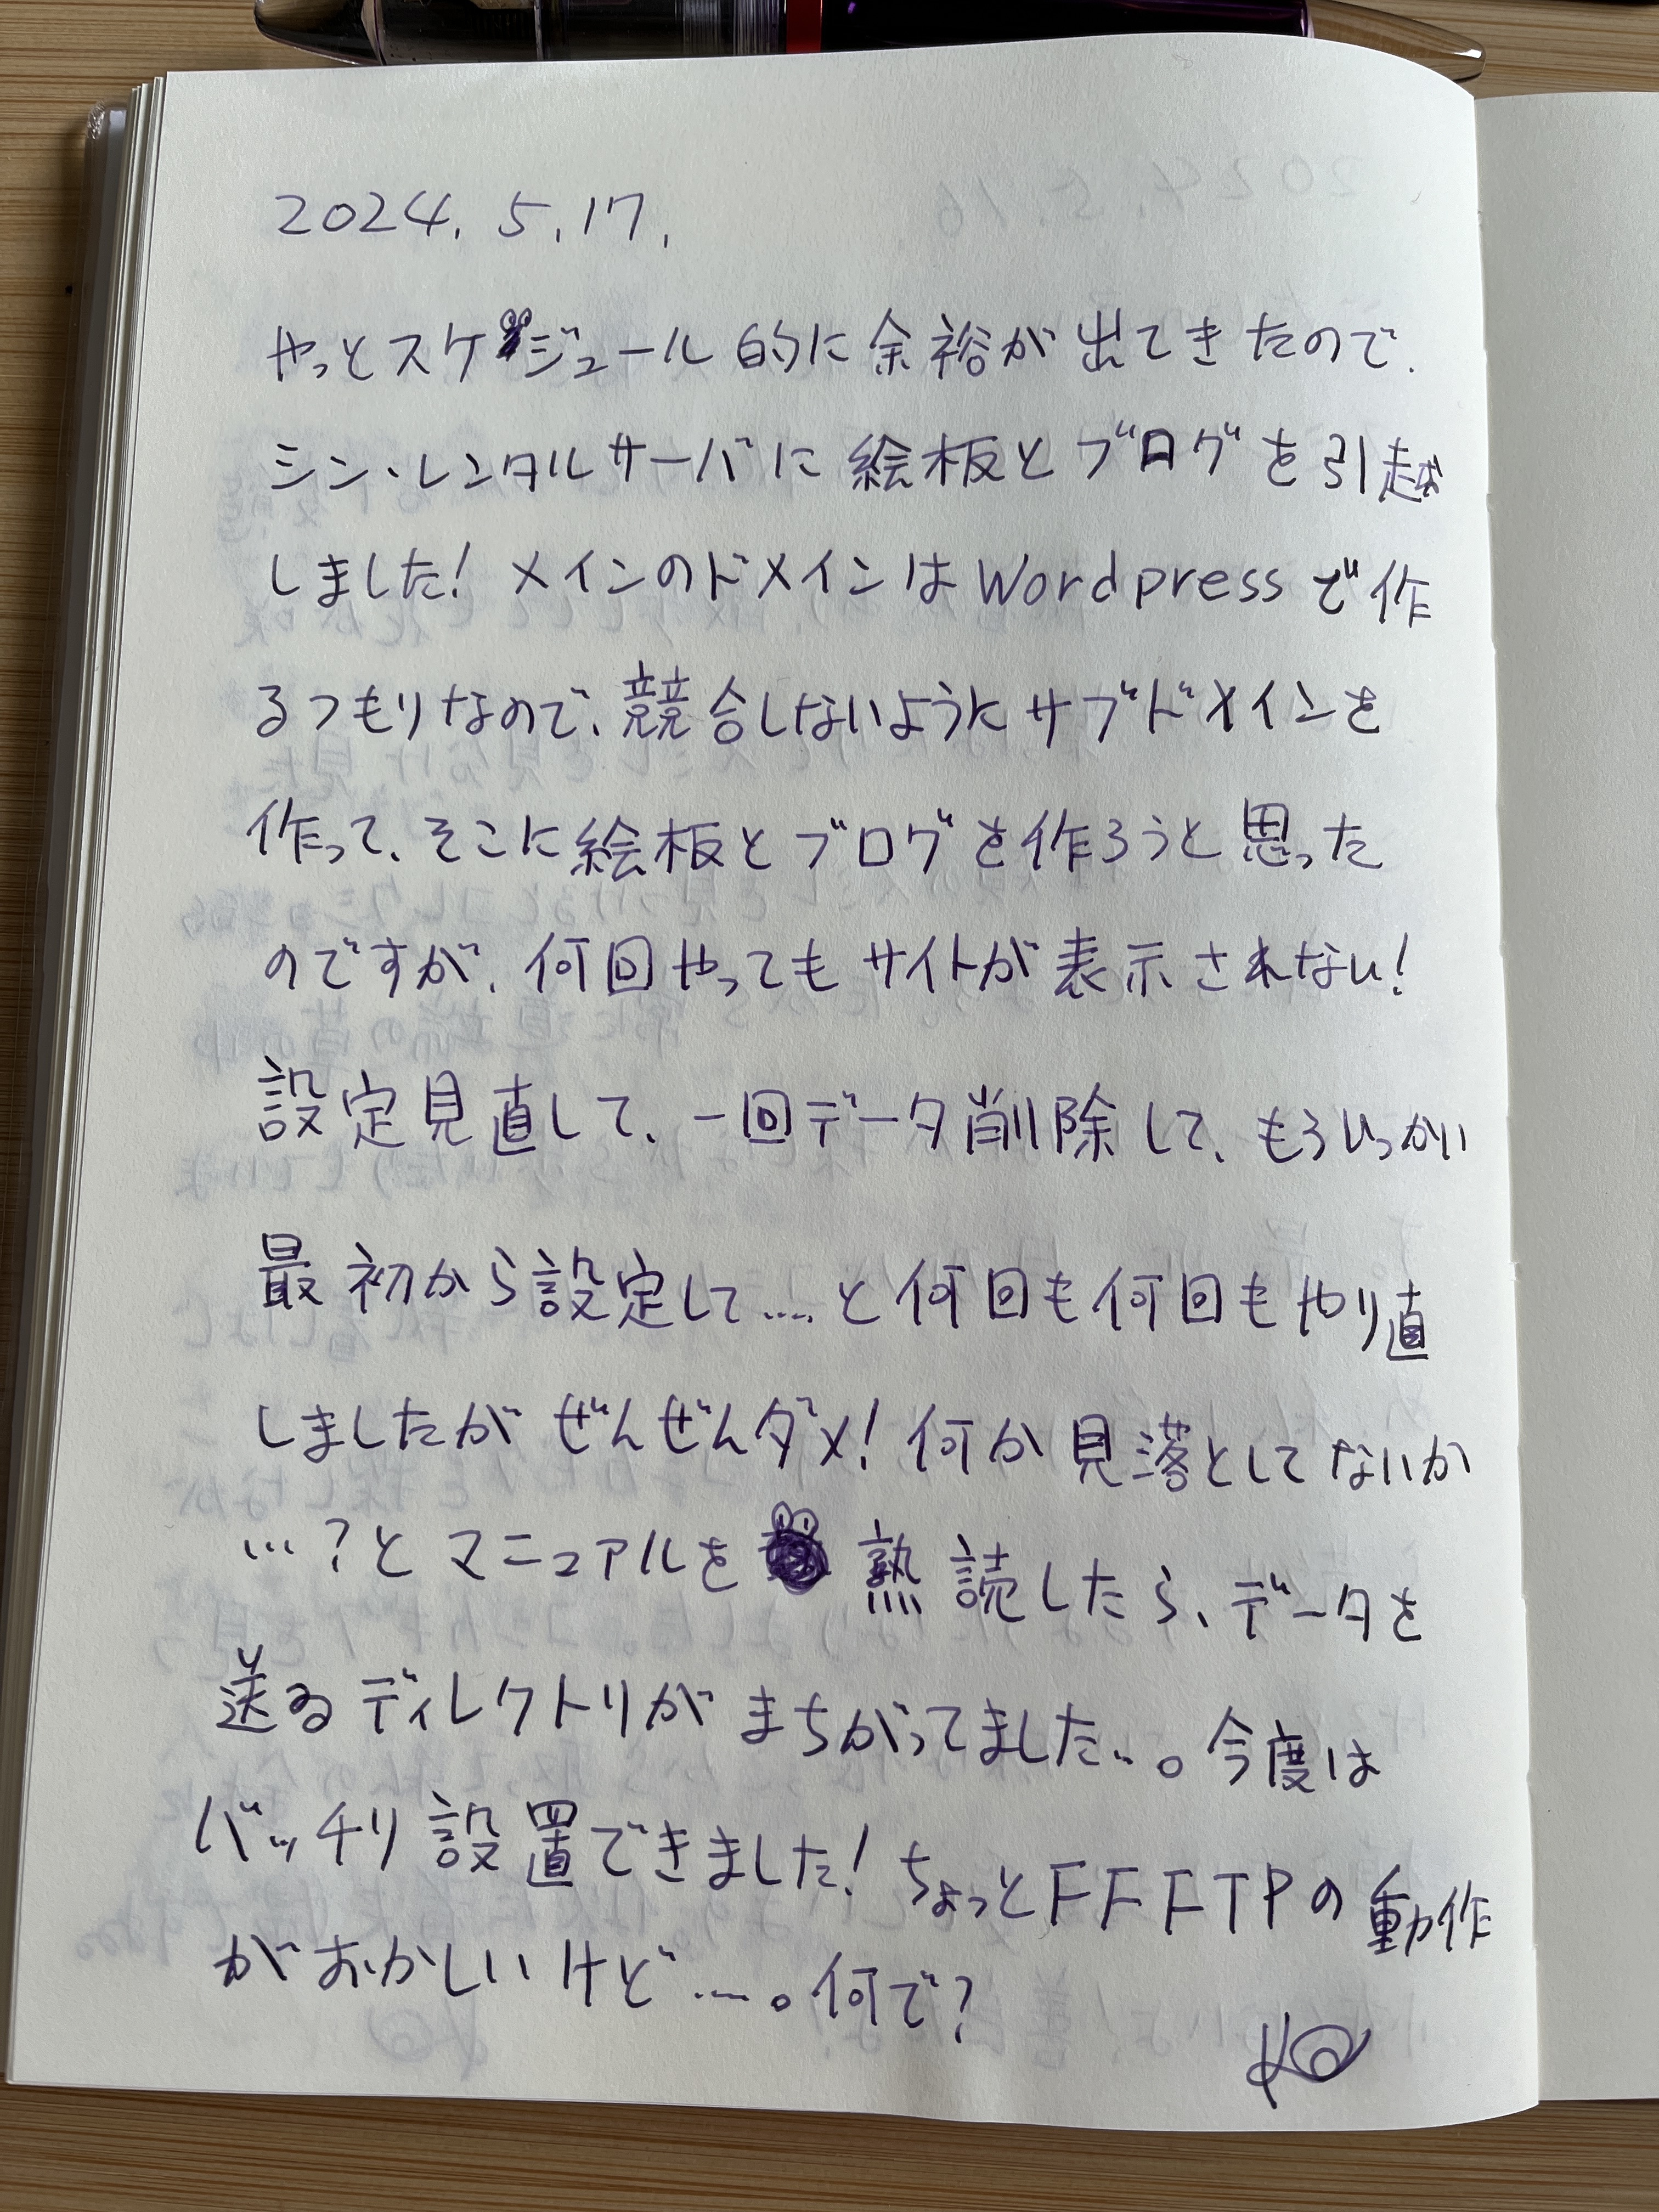 2024.5.17.
やっとスケジュール的に余裕が出てきたので、
シン・レンタルサーバに絵板とブログを引越
しました!メインのドメインはWordpressで作
るつもりなので、競合しないようにサブドメインを
作って、そこに絵板とブログを作ろうと思った
のですが、何回やってもサイトが表示されない!
設定見直して、一回データ削除して、もういっかい
最初から設定して....と何回も何回もやり直
しましたがぜんぜんダメ!何か見落としてないか
...?とマニュアルを熟読したら、データを
送るディレクトリがまちがってました...。今度は
バッチリ設置できました!ちょっとFFFTPの動作
がおかしいけど....。何で?